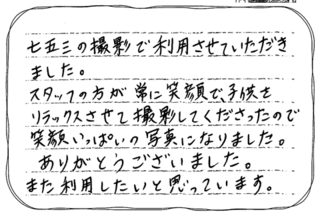 七五三の撮影で利用させていただき
ました。
スタッフの方が常に笑顔で、子供を
リラックスさせて撮影してくださったので
笑顔いっぱいの写真になりました。
ありがとうございました。
また利用したいと思っています。